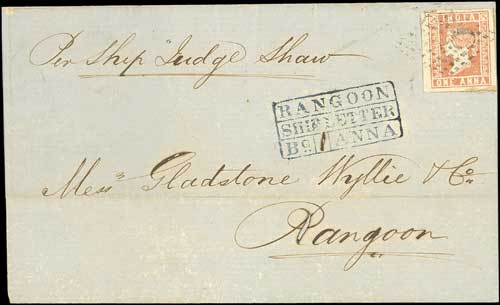 INDIA
ONE ANNA
Per Ship Judge Shaw
RANGOON
SHIP LETTER
Bg. 1 ANNA
Messrs Gladstone Wyllie & Co.
Rangoon